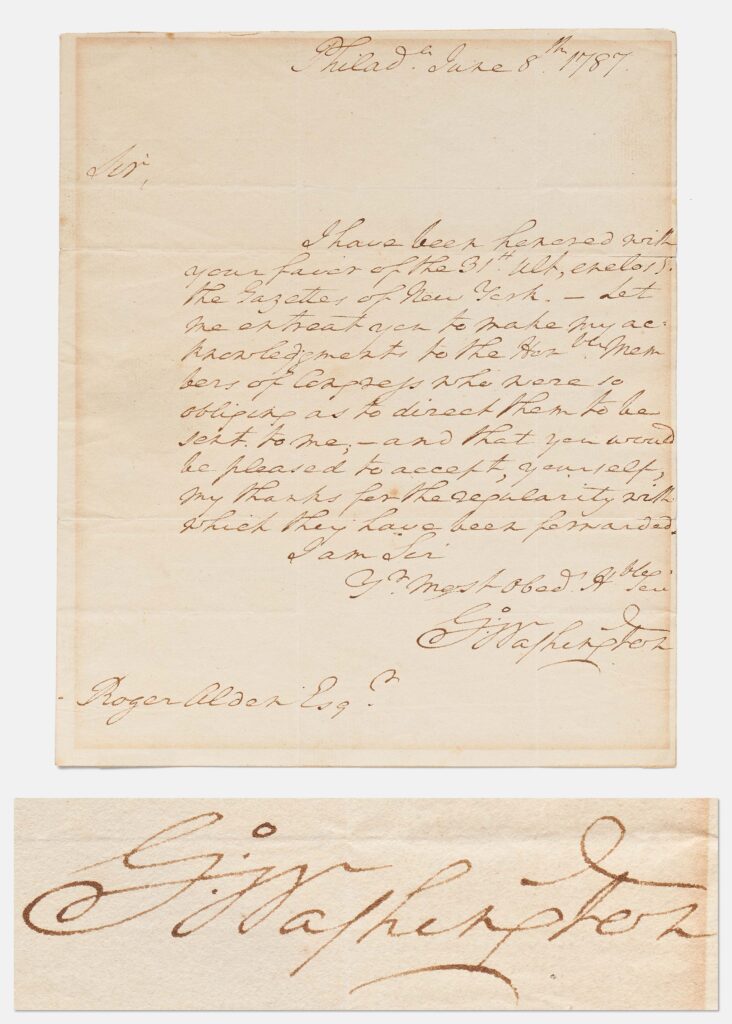 Philad.ᵃ June 8.ᵗʰ 1787.
Sir,
I have been honored with
your favor of the 31ˢᵗ. Ult, enclosg.
the Gazettes of New York. – Let
me entreat you to make my ac-
knowledgments to the Honᵇˡᵉ. Mem
bers of Congress who were so
obliging as to direct them to be
sent to me; – and that you would
be pleased to accept, yourself,
my thanks for the regularity with
which they have been forwarded.
I am Sir
Yʳ. Most Obedᵗ. Hᵇˡᵉ Ser
G:Washington
Roger Alden Esqʳ.
G:Washington